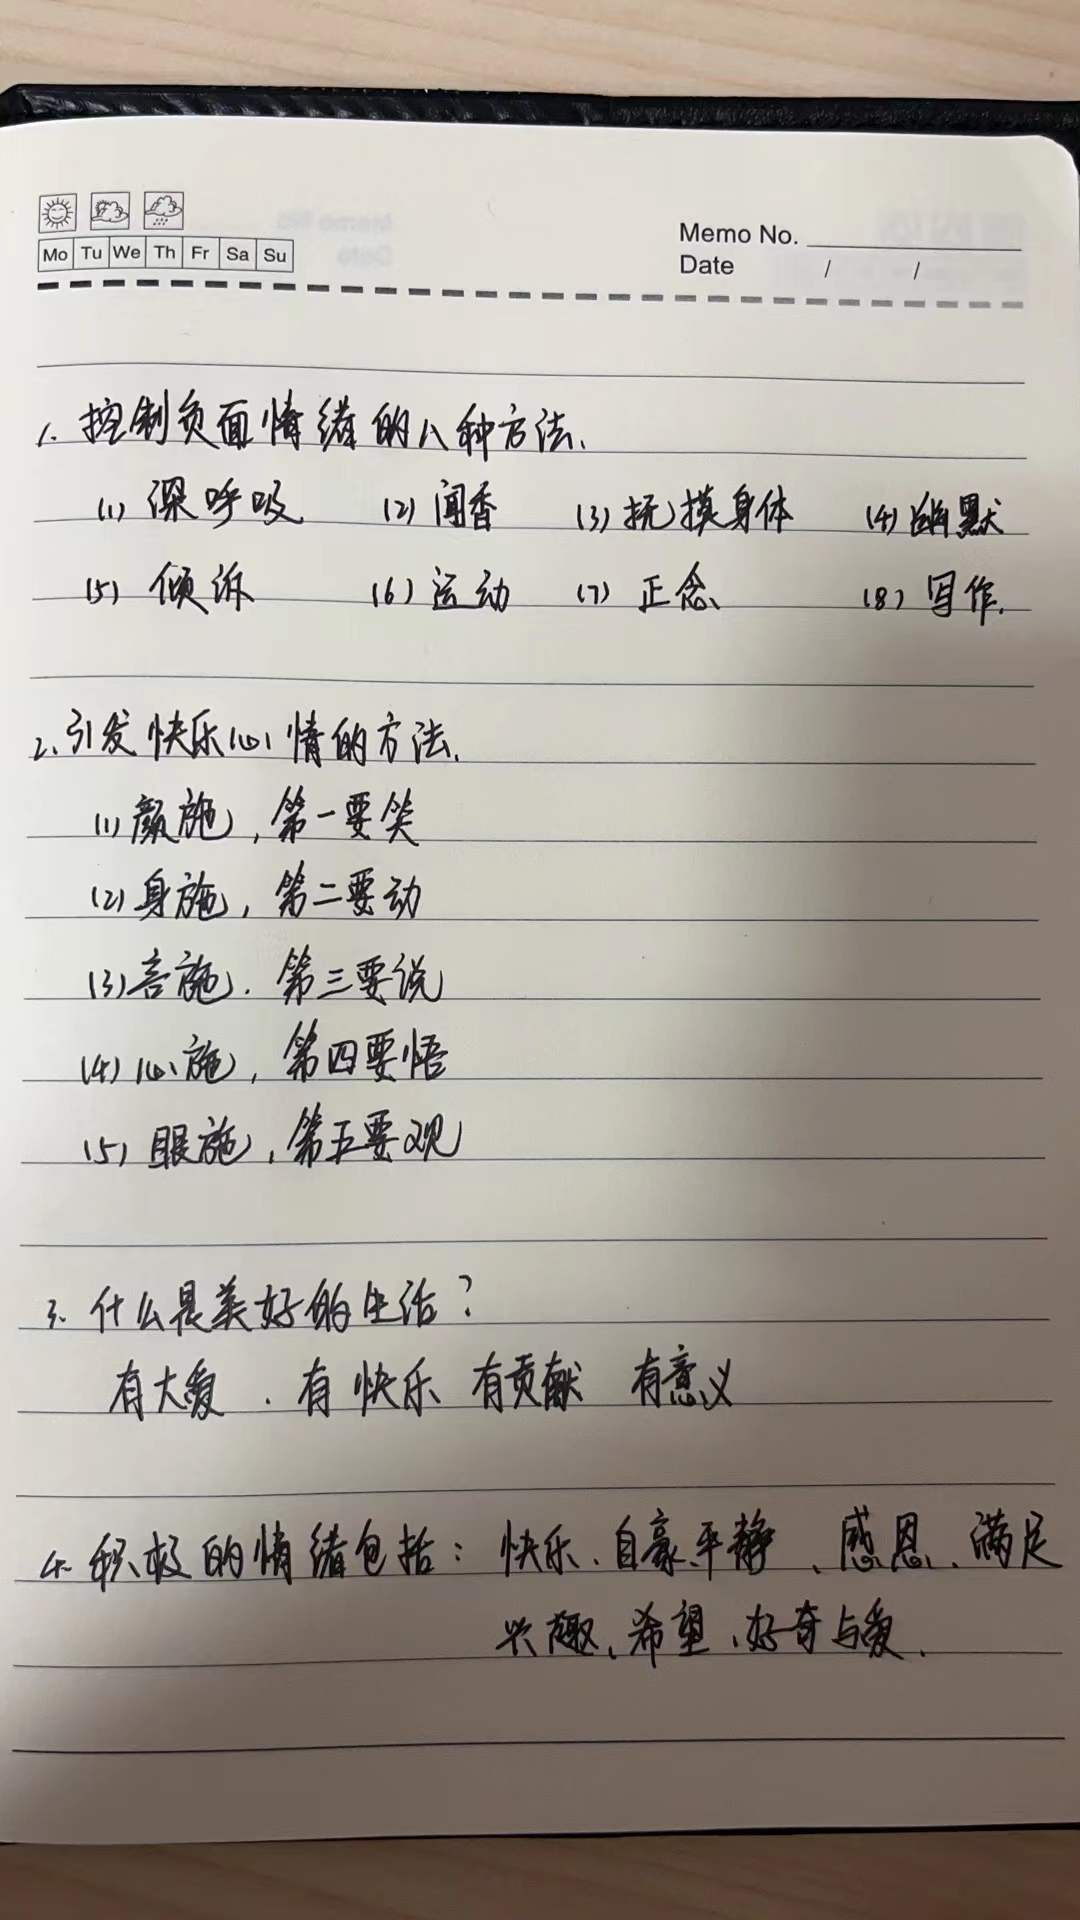 Mo Tu We Th Fr Sa Su
Memo No.
Date / /
1. 控制负面情绪的八种方法.
(1) 深呼吸 (2) 闻香 (3) 抚摸身体 (4) 幽默
(5) 倾诉 (6) 运动 (7) 正念 (8) 写作.
2. 引发快乐心情的方法.
(1) 颜施, 第一要笑
(2) 身施, 第二要动
(3) 言施. 第三要说
(4) 心施, 第四要悟
(5) 眼施, 第五要观
3. 什么是美好的生活?
有大爱 . 有快乐 有贡献 有意义
4. 积极的情绪包括: 快乐、自豪、平静、感恩、满足
兴趣、希望、好奇与爱.